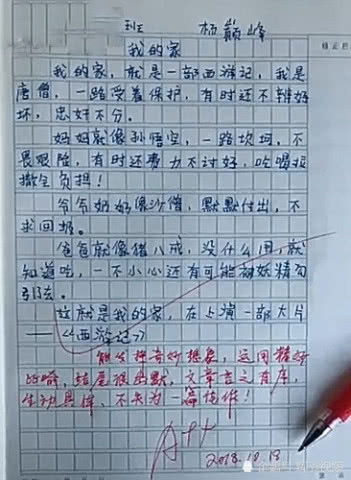 班 杨巅峰
我的家
我的家，就是一部西游记，我是
唐僧，一路受着保护，有时还不辨好
坏，忠奸不分。
妈妈就像孙悟空，一路坎坷，不
畏艰险，有时还费力不讨好，吃喝拉
撒全负担！
爷爷奶奶像沙僧，默默付出，不
求回报。
爸爸就像猪八戒，没什么用，就
知道吃，一不小心还有可能被妖精勾
引去。
这就是我的家，在上演一部大片
——《西游记》
能发挥奇妙想象，运用精妙
比喻，结尾很幽默，文章言之有序，
生动具体，不失为一篇佳作！
A++
2018.10.19